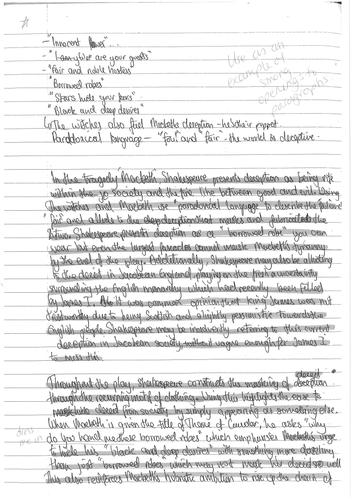 - "Innocent flower"...
- "Lamwlbe are your guests"
- "Fair and noble hostess"
- "Borrowed robes"
- "Stars hide your fires"
- "Black and deep desires"
The witches also fuel Macbeth's deception - he's their puppet.
Paradoxical language - "Foul" and "fair" - the world is deceptive.
Use as an
example of
strong
openings to
paragraphs
In the tragedy Macbeth, Shakespeare presents deception as being rife
within the society and the fine line between good and evil. Using
the witches and Macbeth use "paradoxical language" to describe the
"fair" and alludes to the deep deception that
Shakespeare presents deception as a "borrowed robe" you can
wear but even the largest cannot mask Macbeth's tyranny
by the end of the play. Additionally, Shakespeare may also be alluding
to the deceit in Jacobean England, playing on the fresh uncertainty
surrounding the English monarchy which had recently been filled
by James I. As it was common opinion that King James was not
trustworthy due to being Scottish and slightly towards
English people. Shakespeare may be referring to this current
deception in Jacobean society, without vague enough for James I
to miss this.
Throughout the play, Shakespeare constructs this masking of deceit
through the recurring motif of clothing. Using this highlights the ease to
deceit from society by simply appearing as something else.
When Macbeth is given the title of Thane of Cawdor, he asks "Why
do you dress me in these borrowed robes" which emphasises Macbeth's urge
to hide his "black and deep desires" with something more dazzling
than just "borrowed robes" which may not mask his deceit so well
This also reinforces Macbeth's ambition to rise up the chain of
dress
me in